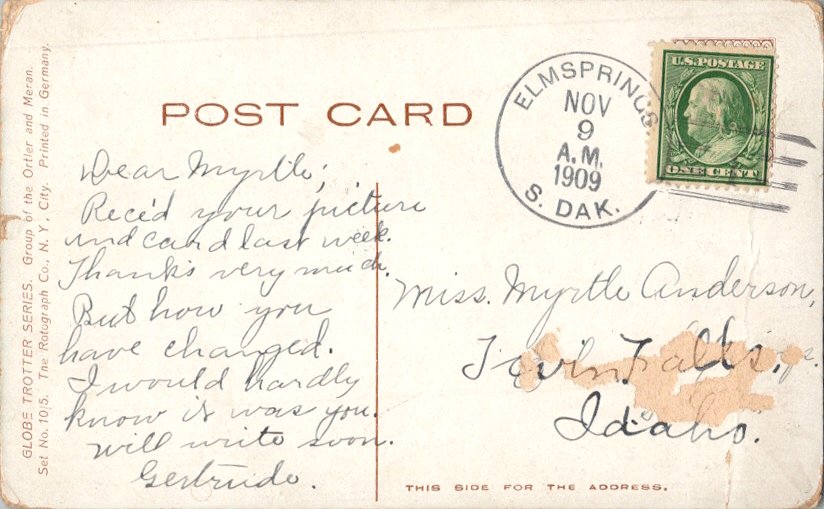 GLOBE TROTTER SERIES. Group of the Ortler and Meran.
Set No. 10|5. The Rotograph Co., N. Y. City. Printed in Germany.
POST CARD
Dear Myrtle;
Rece'd your picture
and card last week.
Thanks very much.
But how you
have changed.
I would hardly
know it was you.
Will write soon.
Gertrude.
ELMSPRINGS.
NOV
9
A.M.
1909
S. DAK.
U.S. POSTAGE
ONE CENT
Miss. Myrtle Anderson,
Twin Falls,
Idaho.
THIS SIDE FOR THE ADDRESS.